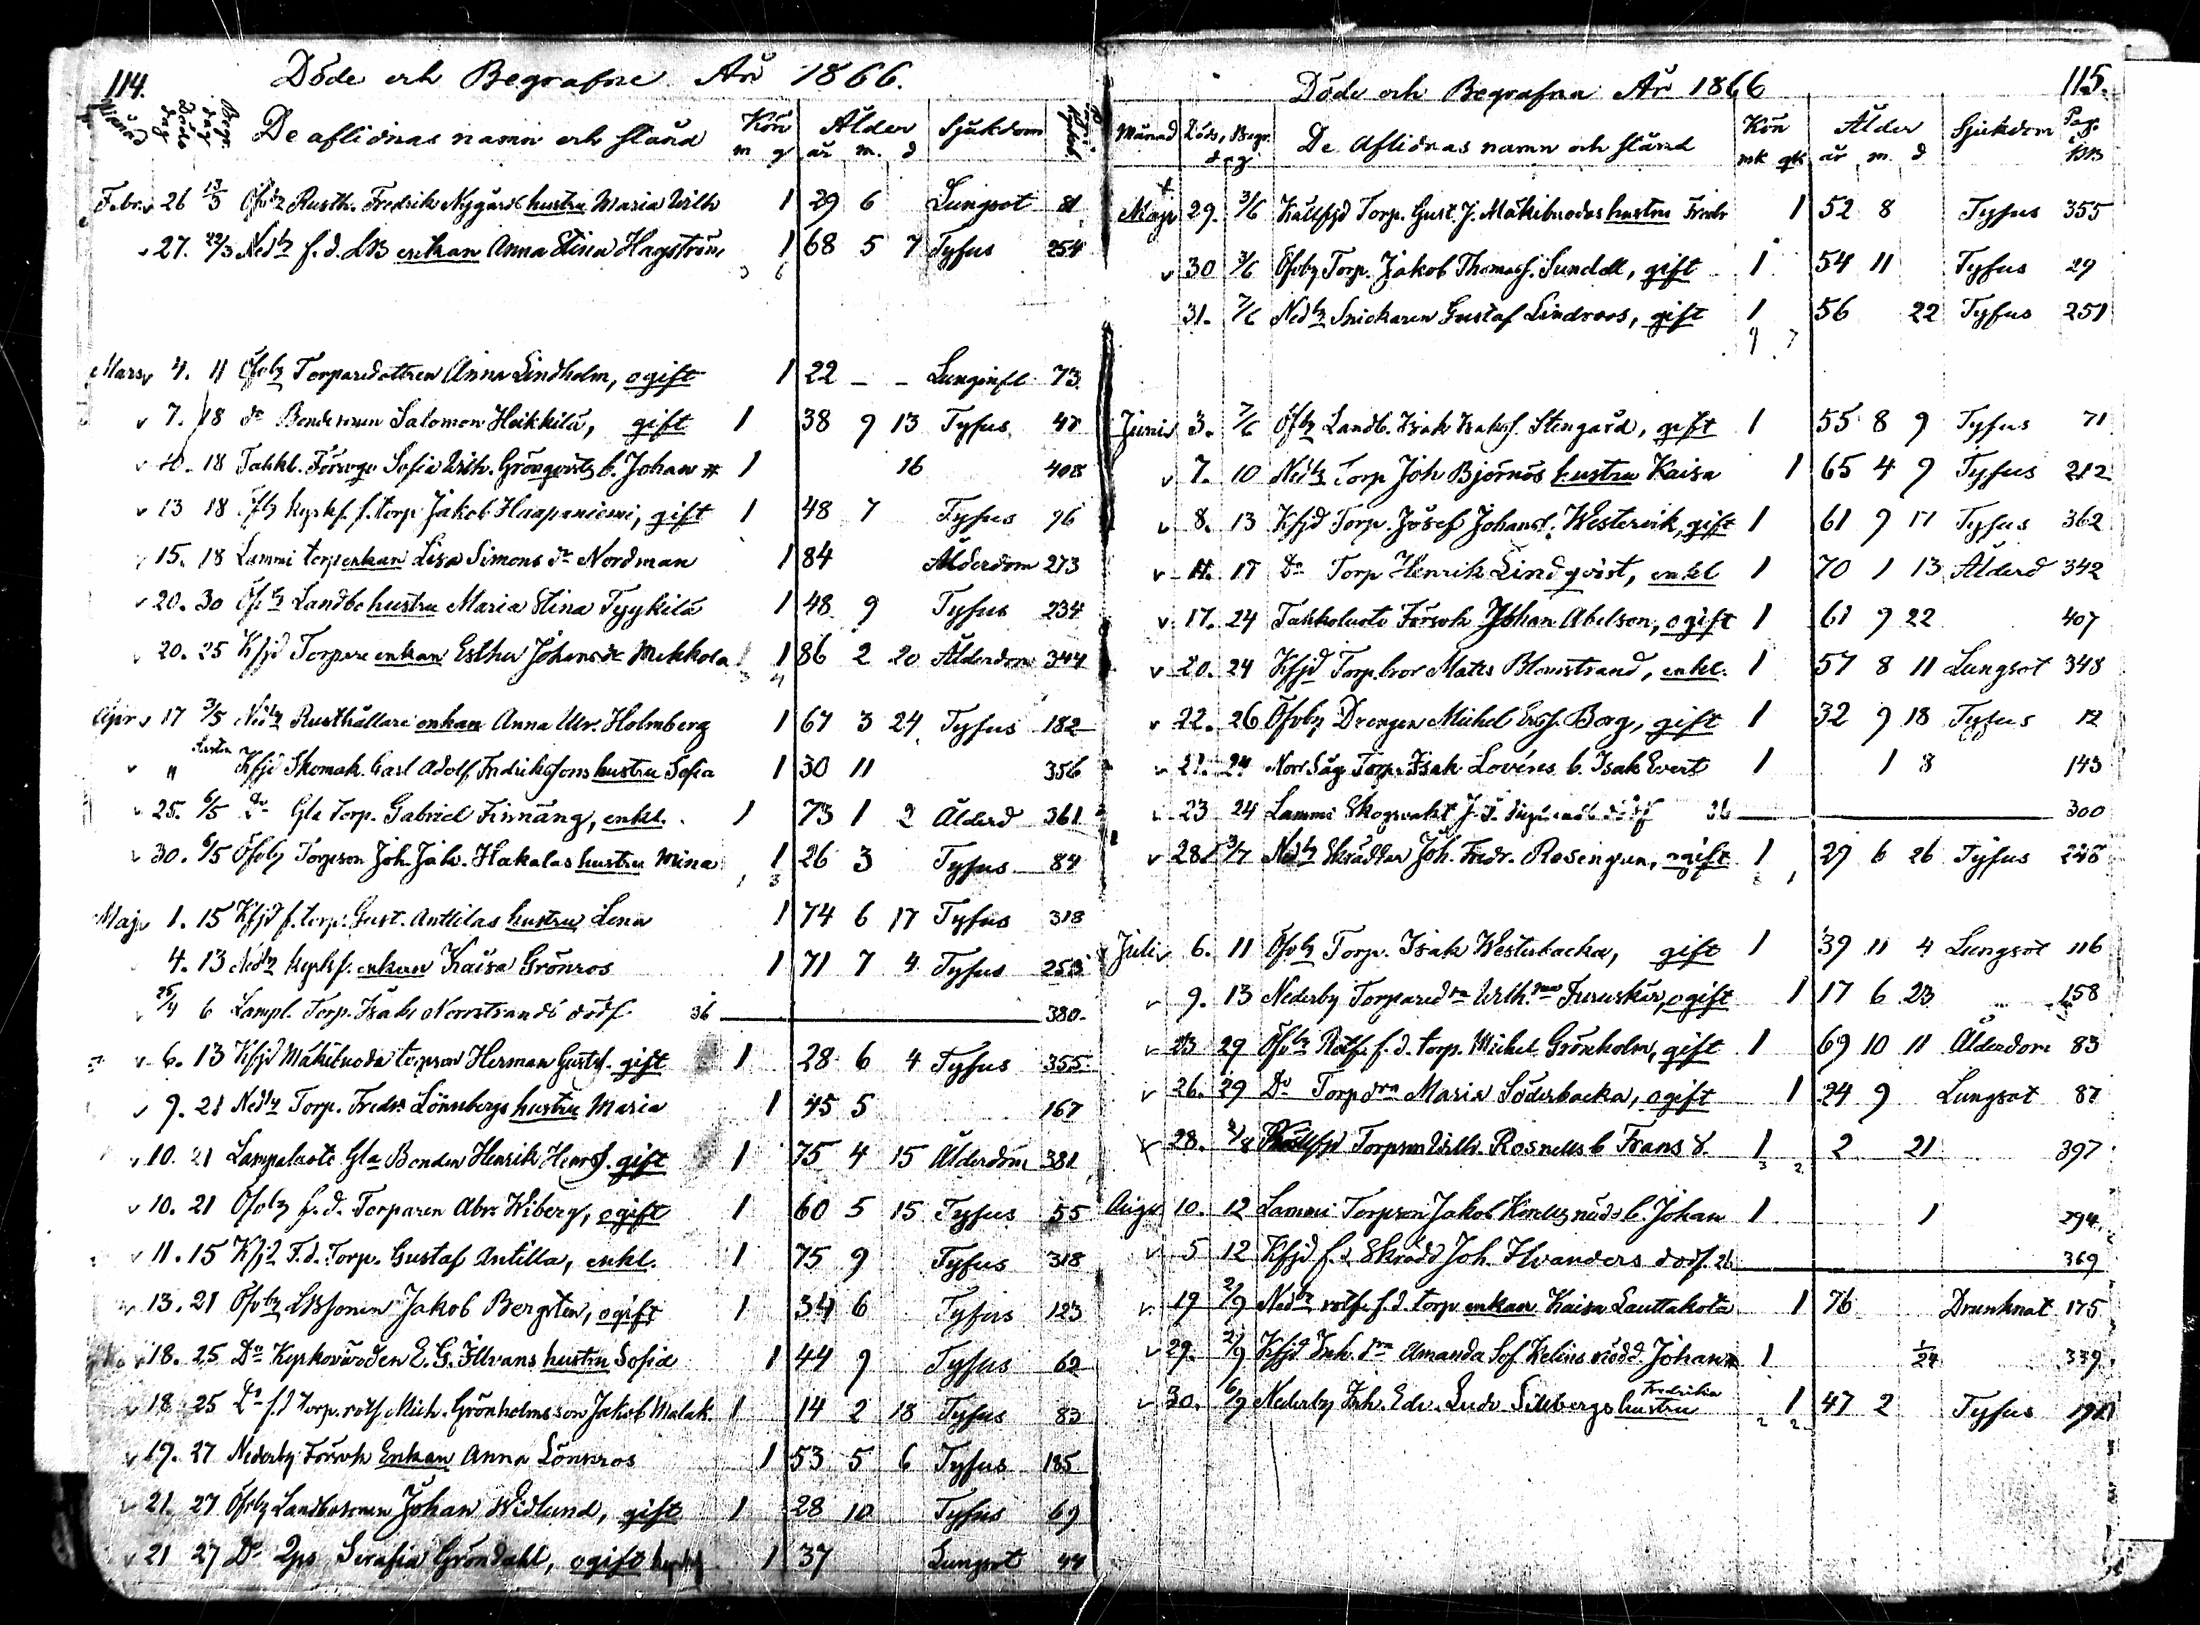 114.
Döde och Begrafne År 1866.
Månad Döds dag Begr. dag De aflidnas namn och stånd Kön m q Ålder år m. d Sjukdom
Febr. 26 13/3 Öfvbӱ Rusth. Fredrik Nygårds hustru Maria Wilh 1 29 6 Lungsot 81
27. 22/3 Nedbӱ f. d. LB enkan Anna Stina Hagström 1 68 5 7 Tyfus 254
3 6
Mars 4. 11 Öfvbӱ Torparedottren Anna Lindholm, ogift 1 22 – – Lunginfl. 73
7. 18 do Bondesonen Salomon Heikkilä, gift 1 38 9 13 Tyfus 47
10. 18 Tahkl. Försvge Sofia Wilh. Grönqvists b. Johan 1 16 408
13 18 kyrkh. f. torp Jakob Haapaniemi, gift 1 48 7 Tyfus 96
15. 18 Lammi torpenkan Lisa Simons dr Nordman 1 84 Ålderdom 273
20. 30 Öfvbӱ Landbohustru Maria Stina Tyykilä 1 48 9 Tyfus 234
20. 25 Kfjd Torpare enkan Esther Johans dr Mikkola 1 86 2 20 Ålderdom 344
3 4
Apr 17 3/5 Nedbӱ Rusthållare enkan Anna Ulr. Holmberg 1 67 3 24 Tyfus 182
" Kfjd Skomak. Carl Adolf Fredrikssons hustru Sofia 1 30 11 356
25. 6/5 Do Gla Torp. Gabriel Finnäng, enkl. 1 73 1 2 Ålderd 361
30. 6/5 Öfvbӱ Torpson Joh. Jak. Hakalas hustru Mina 1 26 3 Tyfus 84
1 3
Maj 1. 15 Kfjd f. torp. Gust. Anttilas hustru Lena 1 74 6 17 Tyfus 318
4. 13 Nedbӱ kyrkf. enkan Kaisa Grönros 1 71 7 4 Tyfus 253
25/4 6 Lampl. Torp. Isaks Norrstrands dödf. 36 380
6. 13 Kfjd Mäkibuoda torpson Herman Gustfs. gift 1 28 6 4 Tyfus 355
9. 21 Nedbӱ Torp. Fredrs Lönnbergs hustru Maria 1 45 5 167
10. 21 Lampaluoto Gla Bonden Henrik Henrs. gift 1 75 4 15 Ålderdom 381
10. 21 Öfvbӱ f. d. Torparen Abr. Wiberg, ogift 1 60 5 15 Tyfus 55
11. 15 Kfjd F. d. Torp. Gustaf Antilla, enkl. 1 75 9 Tyfus 318
13. 21 Öfvbӱ LBsonen Jakob Bergsten, ogift 1 34 6 Tyfus 123
18. 25 Do Kyrkovärden E. G. Illvans hustru Sofia 1 44 9 Tyfus 62
18 25 Do f. d torp. rotf Mich. Grönholms son Jakob Malak. 1 14 2 18 Tyfus 83
19. 27 Nederby Försvh Enkan Anna Lönnros 1 53 5 6 Tyfus 185
21. 27 Öfvbӱ Landbosonen Johan Widlund, gift 1 28 10 Tyfus 69
21 27 Do Qps Serafia Gröndahl, ogift 1 37 Lungsot 44
115.
Döde och Begrafna År 1866
Månad Döds, Begr. dag De Aflidnas namn och stånd Kön mk qk Ålder år m. d Sjukdom Pag. KB
Maji 29. 3/6 Kallfjd Torp. Gust. J. Mäkibuodas hustru Fredr 1 52 8 Tyfus 355
30 3/6 Öfvby Torp. Jakob Thomas. Sundell, gift 1 54 11 Tyfus 29
31. 7/6 Nedbӱ Snickaren Gustaf Lindroos, gift 1 56 22 Tyfus 251
9 7
Juni 3. 7/6 Öfbӱ Landb. Isak Isaks. Stengård, gift 1 55 8 9 Tyfus 71
7. 10 Nedbӱ Torp Joh Björnös hustru Kaisa 1 65 4 9 Tyfus 212
8. 13 Kfjd Torp. Josef Johans. Westervik, gift 1 61 9 17 Tyfus 362
11. 17 Do Torp Henrik Lindqvist, enkl 1 70 1 13 Ålderd 342
17. 24 Tahkoluoto Försvh Johan Abelson, ogift 1 61 9 22 407
20. 24 Kfjd Torp.bror Matts Blomstrand, enkl. 1 57 8 11 Lungsot 348
22. 26 Öfvby Drengen Mickel Ersf. Borg, gift 1 32 9 18 Tyfus 12
21. 24 Norr Såg Torp. Isak Lovéns b. Isak Evert 1 1 8 143
23 24 Lammi Skogsvakt J. 36 300
28 3/7 Nedbӱ Skräddar Joh. Fredr. Rosengren, ogift 1 29 6 26 Tyfus 248
Juli 6. 11 Öfvbӱ Torp. Isak Westerbacka, gift 1 39 11 4 Lungsot 116
9. 13 Nederby Torparedra Wilhna Furuskär, ogift 1 17 6 23 158
23 29 Öfvbӱ Rotf. f. d. torp. Mickel Grönholm, gift 1 69 10 11 Ålderdom 83
26. 29 Do Torpdra Maria Söderbacka, ogift 1 24 9 Lungsot 87
28. 2/8 Torpson Wilh. Rosnells b Frans 1 2 21 397
3 2
Augu 10. 12 Lammi Torpson Jakob b. Johan 1 1 294
5 12 Kfjd f. d. Skrädd Joh. Ilvanders dödf. 26 369
19 2/9 Nedbӱ rotf. f. d. torp enkan Kaisa Lauttakota 1 76 Drunknat 175
29. 2/9 Kfjd Inh. dra Amanda Sof Kelins Johan 1 1/24 339
30. 6/9 Nederby Inh. Edv. Ludv Lillbergs hustru Fredrika 1 47 2 Tyfus
2 2